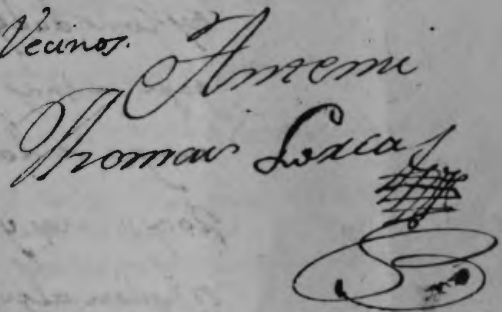 Vecinos.
Antemi
Thomas Lorca